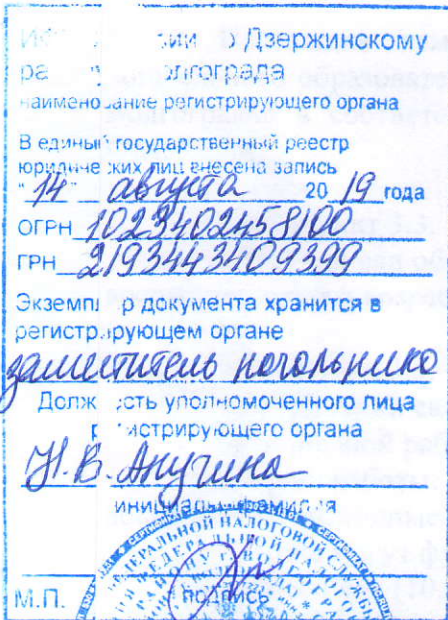 Дзержинскому
наименование регистрирующего органа
В единый государственный реестр
юридических лиц внесена запись
"14" августа 2019 года
ОГРН 1023402458100
ГРН 2193443409399
Экземпляр документа хранится в
регистрирующем органе
заместитель начальника
Должность уполномоченного лица
регистрирующего органа
Н.В. Анучина
инициалы, фамилия
подпись
М.П.